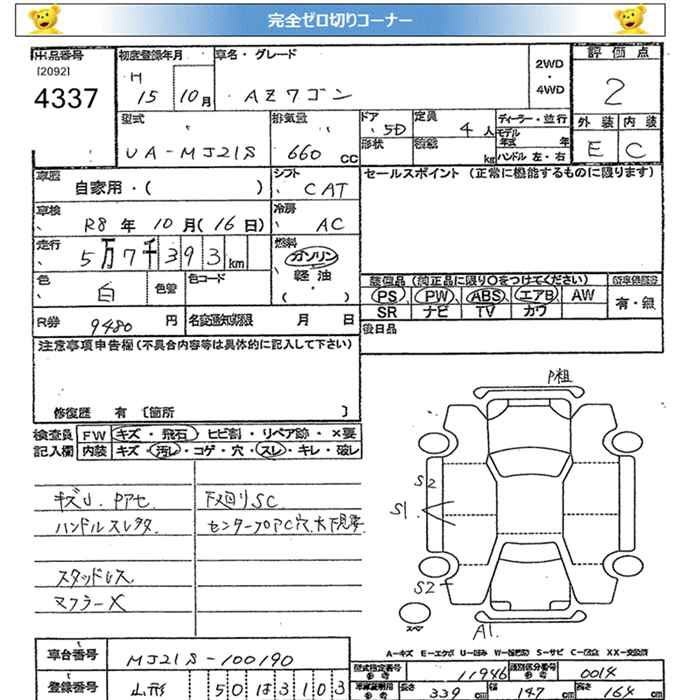 完全ゼロ切りコーナー
出品番号 初度登録年月 車名・グレード 2WD・4WD 評価点
[2092]
4337
H 15 10月 AZワゴン 2
型式 排気量 ドア 定員 ディーラー・並行 外装 内装
UA-MJ21S 660 CC 5D 4人 モデル年式 年 E C
形状 積載 kg ハンドル 左・右
車歴 自家用・( ) シフト CAT セールスポイント (正常に機能するものに限ります)
車検 R8年 10月 (16日) 冷房 AC
走行 5万7千393km 燃料 ガソリン
軽油
( )
色 白 色替 色コード
装備品 (純正品に限り○をつけてください)
PS PW ABS エアB AW 有・無
SR ナビ TV カワ
R券 9480 円 名変通知期限 月 日 後日品
注意事項申告欄 (不具合内容等は具体的に記入して下さい)
修復歴 有 〔箇所 〕
検査員 FW キズ・飛石・ヒビ割・リペア跡・×要
記入欄 内装 キズ・汚レ・コゲ・穴・スレ・キレ・破レ
キズU. Pアセ 下回りSC
ハンドルスレクタ. センタープロアC穴大下見要
スタッドレス
マフラーX
P祖
S2
S1
S2
スペア
A1.
A-キズ E-エクボ U-凹み W-修理跡 S-サビ C-腐食 XX-交換済
車台番号 MJ21S-100190 型式指定番号 11946 類別区分番号 0014
登録番号 山形 50 は 3103 長さ 339 cm 幅 147 cm 高さ 164 cm